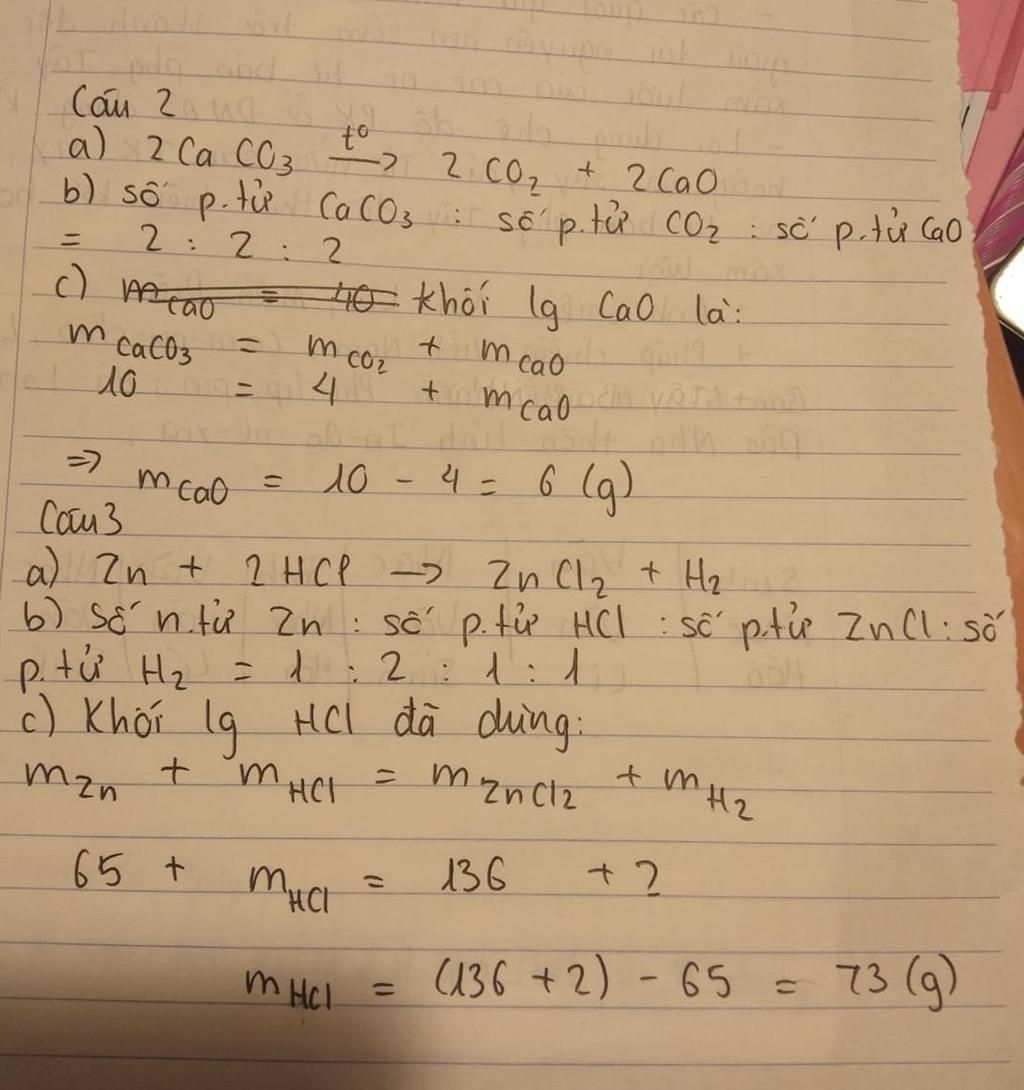 Câu 2
a) 2CaCO₃ t° → 2CO₂ + 2CaO
b) số p.tử CaCO₃ : số p.tử CO₂ : số p.tử CaO
= 2 : 2 : 2
c) m CaO = 40 khối lg CaO là:
m CaCO₃ = m CO₂ + m CaO
10 = 4 + m CaO
=> m CaO = 10 - 4 = 6 (g)
Câu 3
a) Zn + 2HCl → ZnCl₂ + H₂
b) Số n.tử Zn : số p.tử HCl : số p.tử ZnCl : số
p.tử H₂ = 1 : 2 : 1 : 1
c) Khối lg HCl đã dùng:
m Zn + m HCl = m ZnCl₂ + m H₂
65 + m HCl = 136 + 2
m HCl = (136 + 2) - 65 = 73 (g)